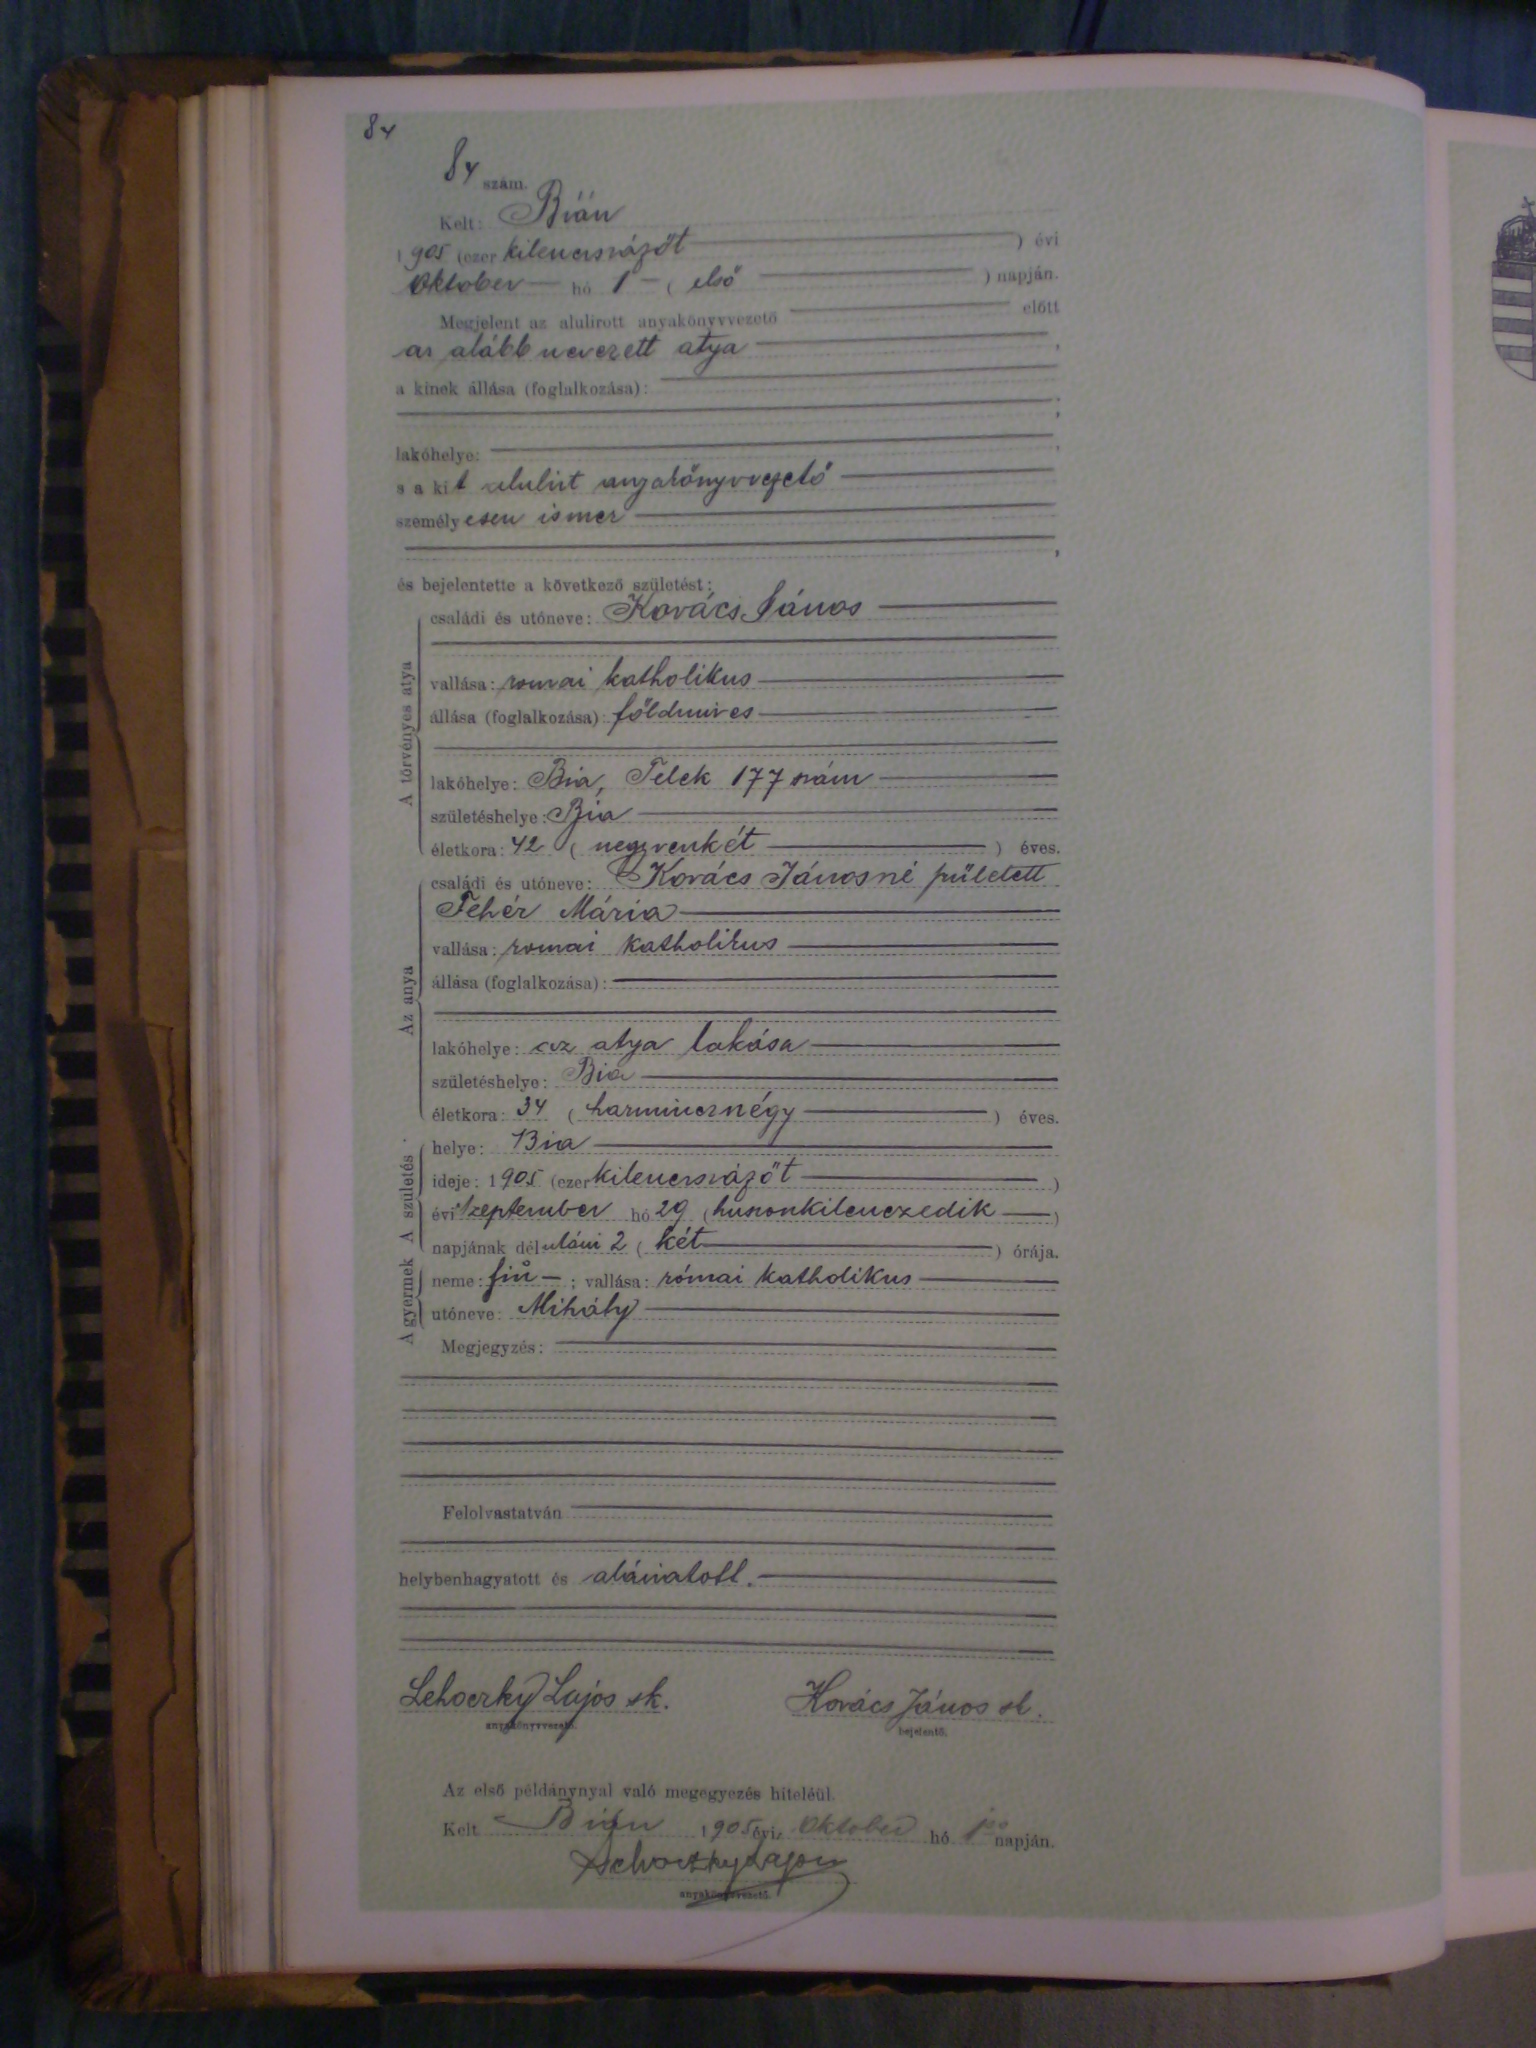 84
84 szám.
Kelt: Bián
1905 (ezer kilencszázöt) évi
Oktober hó 1 (első) napján.
Megjelent az alulirott anyakönyvvezető előtt
az alább nevezett atya,
a kinek állása (foglalkozása):
;
lakóhelye: ,
s a kit alulirt anyakönyvvezető
személyesen ismer
,
és bejelentette a következő születést:
A törvényes atya
családi és utóneve: Kovács János
vallása: romai katholikus
állása (foglalkozása): földmives
lakóhelye: Bia, Telek 177 szám
születéshelye: Bia
életkora: 42 (negyvenkét) éves.
Az anya
családi és utóneve: Kovács Jánosné született
Fehér Mária
vallása: romai katholikus
állása (foglalkozása):
lakóhelye: az atya lakása
születéshelye: Bia
életkora: 34 (harmincznégy) éves.
A születés
helye: Bia
ideje: 1905 (ezer kilencszázöt)
évi Szeptember hó 29 (huszonkilenczedik)
napjának délutáni 2 (két) órája.
A gyermek
neme: fiú; vallása: római katholikus
utóneve: Mihály
Megjegyzés:
Felolvastatván
helybenhagyatott és aláiratott.
Lehoczky Lajos sk. Kovács János sk.
anyakönyvvezető. bejelentő.
Az első példánynyal való megegyezés hiteléül.
Kelt Bián 1905 évi Oktober hó 1 napján.
Lehoczky Lajos
anyakönyvvezető.